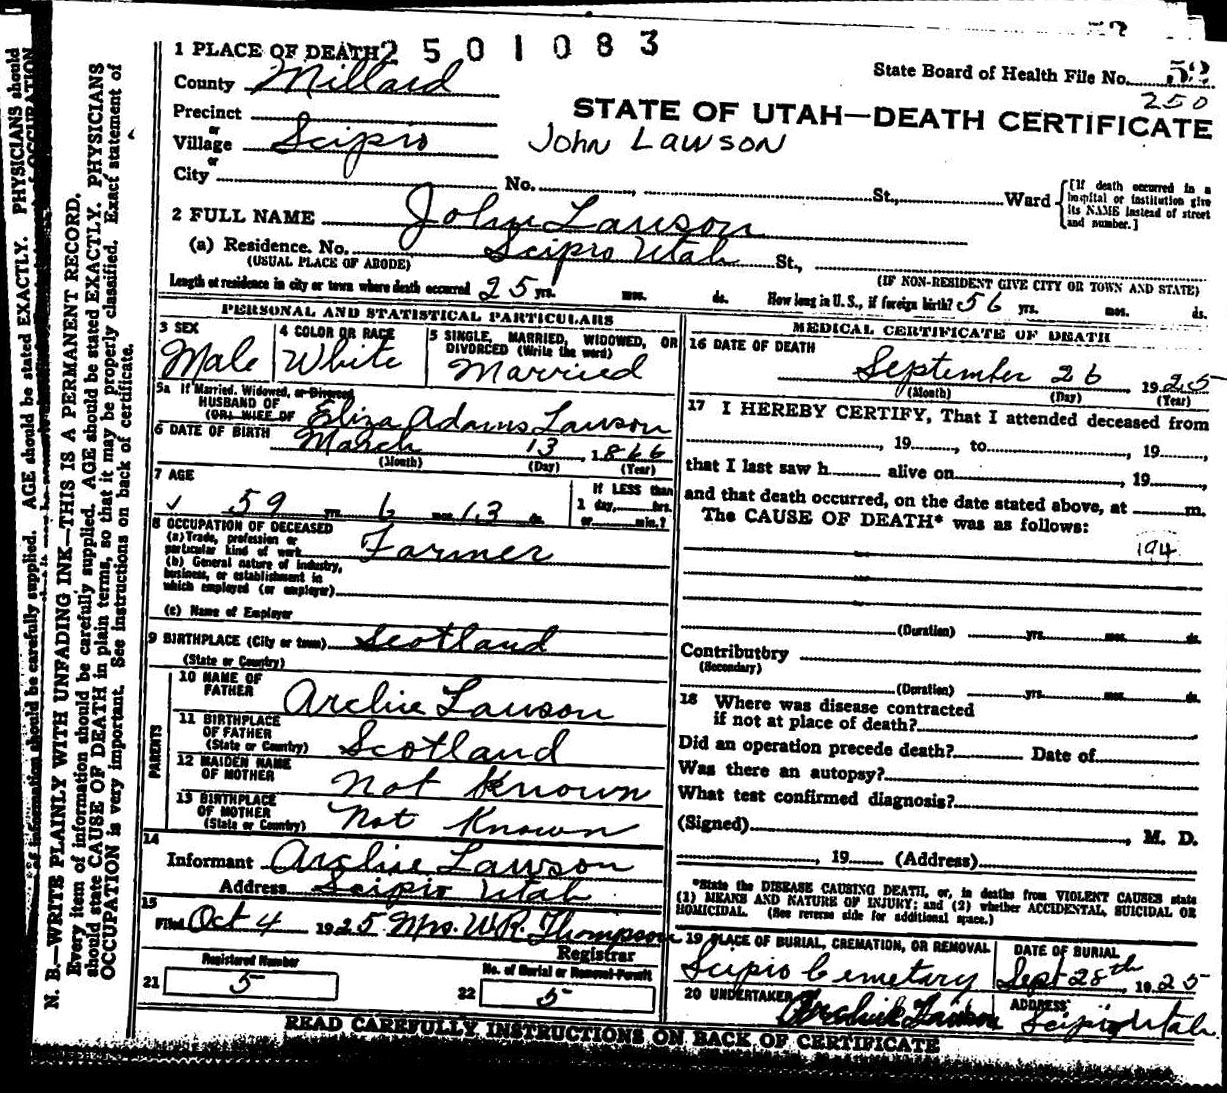 2501083
52
1 PLACE OF DEATH
State Board of Health File No. 52
250
County Millard
STATE OF UTAH—DEATH CERTIFICATE
Precinct
or
Village Scipio
John Lawson
or
City No. St., Ward
[If death occurred in a hospital or institution give its NAME instead of street and number.]
2 FULL NAME John Lawson
(a) Residence. No. Scipio Utah St.,
(USUAL PLACE OF ABODE) (IF NON-RESIDENT GIVE CITY OR TOWN AND STATE)
Length of residence in city or town where death occurred 25 yrs. mos. ds. How long in U. S., if foreign birth? 56 yrs. mos. ds.
PERSONAL AND STATISTICAL PARTICULARS
3 SEX Male
4 COLOR OR RACE White
5 SINGLE, MARRIED, WIDOWED, OR DIVORCED (Write the word) Married
5a If Married, Widowed, or Divorced
HUSBAND OF
(OR) WIFE OF Eliza Adams Lawson
6 DATE OF BIRTH March 13, 1866
(Month) (Day) (Year)
7 AGE
59 yrs. 6 mos. 13 ds.
If LESS than
1 day, hrs.
or min.?
8 OCCUPATION OF DECEASED
(a) Trade, profession or
particular kind of work Farmer
(b) General nature of industry,
business, or establishment in
which employed (or employer)
(c) Name of Employer
9 BIRTHPLACE (City or town) Scotland
(State or Country)
PARENTS
10 NAME OF
FATHER Archie Lawson
11 BIRTHPLACE
OF FATHER
(State or Country) Scotland
12 MAIDEN NAME
OF MOTHER Not Known
13 BIRTHPLACE
OF MOTHER
(State or Country) Not Known
14
Informant Archie Lawson
Address Scipio Utah
15
Filed Oct 4 1925 Mrs. W.R. Thompson
Registrar
Registered Number
21 5
No. of Burial or Removal Permit
22 5
MEDICAL CERTIFICATE OF DEATH
16 DATE OF DEATH
September 26 1925
(Month) (Day) (Year)
17 I HEREBY CERTIFY, That I attended deceased from
, 19 , to , 19 ,
that I last saw h alive on , 19 ,
and that death occurred, on the date stated above, at m.
The CAUSE OF DEATH* was as follows:
194
(Duration) yrs. mos. ds.
Contributory
(Secondary)
(Duration) yrs. mos. ds.
18 Where was disease contracted
if not at place of death?
Did an operation precede death? Date of
Was there an autopsy?
What test confirmed diagnosis?
(Signed) , M. D.
, 19 (Address)
*State the DISEASE CAUSING DEATH, or, in deaths from VIOLENT CAUSES state
(1) MEANS AND NATURE OF INJURY; and (2) whether ACCIDENTAL, SUICIDAL OR
HOMICIDAL. (See reverse side for additional space.)
19 PLACE OF BURIAL, CREMATION, OR REMOVAL
Scipio Cemetary
DATE OF BURIAL
Sept 28th 1925
20 UNDERTAKER Archie Lawson
ADDRESS
Scipio Utah
READ CAREFULLY INSTRUCTIONS ON BACK OF CERTIFICATE
N. B.—WRITE PLAINLY WITH UNFADING INK—THIS IS A PERMANENT RECORD.
Every item of information should be carefully supplied. AGE should be stated EXACTLY. PHYSICIANS
should state CAUSE OF DEATH in plain terms, so that it may be properly classified. Exact statement of
OCCUPATION is very important. See instructions on back of certificate.